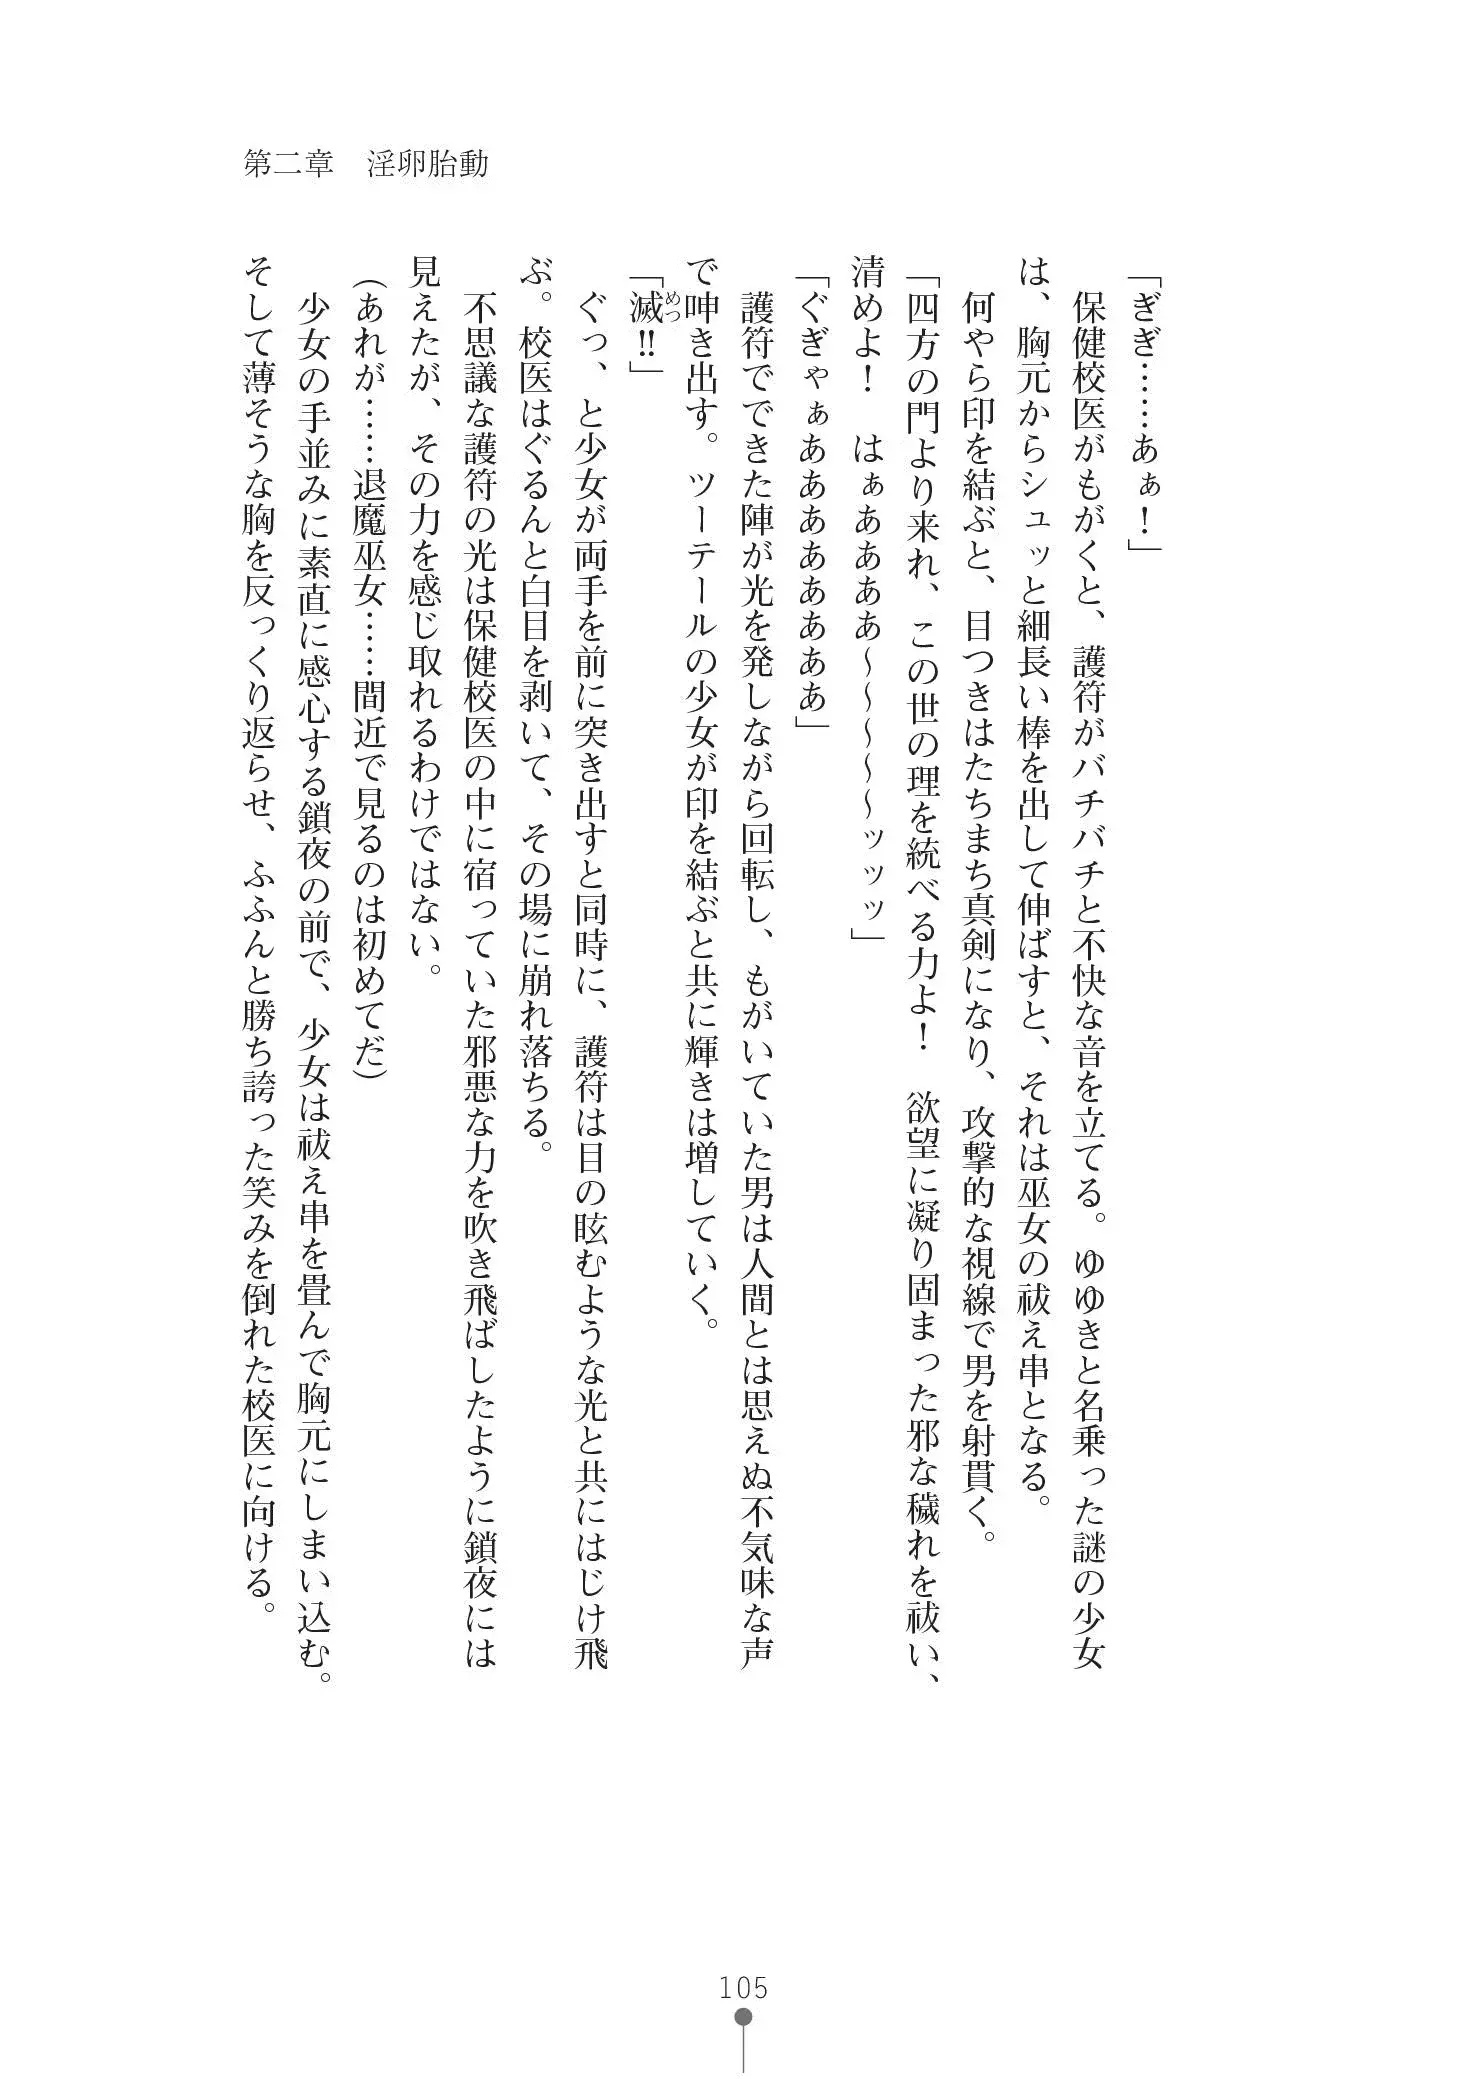 第二章　淫卵胎動
「ぎぎ……あぁ！」
　保健校医がもがくと、護符がバチバチと不快な音を立てる。ゆゆきと名乗った謎の少女
は、胸元からシュッと細長い棒を出して伸ばすと、それは巫女の祓え串となる。
　何やら印を結ぶと、目つきはたちまち真剣になり、攻撃的な視線で男を射貫く。
「四方の門より来れ、この世の理を統べる力よ！　欲望に凝り固まった邪な穢れを祓い、
清めよ！　はぁああああ～～～～～ッッッ」
「ぐぎゃぁああああああああ」
　護符でできた陣が光を発しながら回転し、もがいていた男は人間とは思えぬ不気味な声
で呻き出す。ツーテールの少女が印を結ぶと共に輝きは増していく。
「滅めつ‼」
　ぐっ、と少女が両手を前に突き出すと同時に、護符は目の眩むような光と共にはじけ飛
ぶ。校医はぐるんと白目を剥いて、その場に崩れ落ちる。
　不思議な護符の光は保健校医の中に宿っていた邪悪な力を吹き飛ばしたように鎖夜には
見えたが、その力を感じ取れるわけではない。
（あれが……退魔巫女……間近で見るのは初めてだ）
　少女の手並みに素直に感心する鎖夜の前で、少女は祓え串を畳んで胸元にしまい込む。
そして薄そうな胸を反っくり返らせ、ふふんと勝ち誇った笑みを倒れた校医に向ける。
105